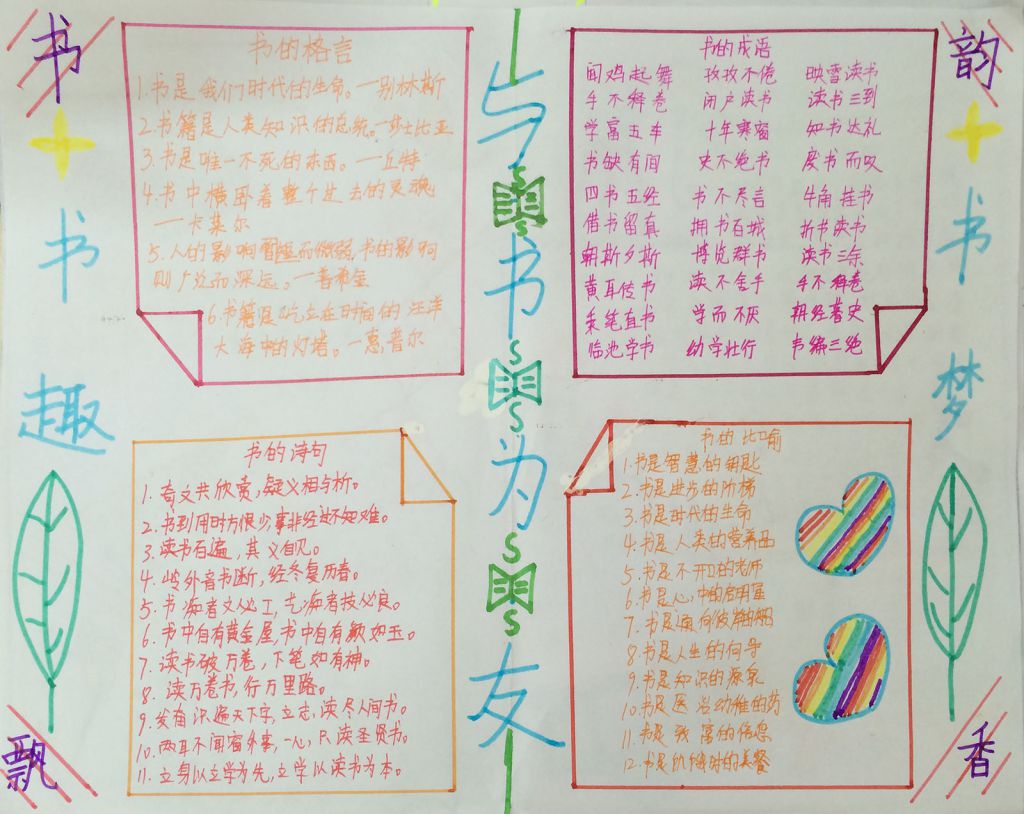 书 趣 飘
书 +
韵 + 书 梦 香
与书为友
书的格言
1.书是我们时代的生命。—别林斯
2.书籍是人类知识的总统。—莎士比亚
3.书是唯一不死的东西。—丘特
4.书中横卧着整个过去的灵魂
—卡莱尔
5.人的影响 而微弱,书的影响
则广 而深远。—普希金
6.书籍是屹立在时间的汪洋
大海中的灯塔。—惠普尔
书的成语
闻鸡起舞 孜孜不倦 映雪读书
手不释卷 闭户读书 读书三到
学富五车 十年寒窗 知书达礼
书缺有间 史不绝书 废书而叹
四书五经 书不尽言 牛角挂书
借书留真 拥书百城 折节读书
朝斯夕斯 博览群书 读书三余
黄耳传书 读不舍手 手不释卷
秉笔直书 学而不厌 耕经 史
临池学书 幼学壮行 韦编三绝
书的诗句
1.奇文共欣赏,疑义相与析。
2.书到用时方恨少事非经过不知难。
3.读书百遍,其义自见。
4.岭外音书断,经冬复历春。
5.书痴者文必工,艺痴者技必良。
6.书中自有黄金屋,书中自有颜如玉。
7.读书破万卷,下笔如有神。
8.读万卷书,行万里路。
9.发奋识遍天下字,立志读尽人间书。
10.两耳不闻窗外事,一心只读圣贤书。
11.立身以立学为先,立学以读书为本。
书的比喻
1.书是智慧的钥匙
2.书是进步的阶梯
3.书是时代的生命
4.书是人类的营养品
5.书是不开口的老师
6.书是心中的启明星
7.书是 向彼岸的船
8.书是人生的向导
9.书是知识的源泉
10.书是医 幼稚的药
11.书是致富的信息
12.书是饥饿时的美餐